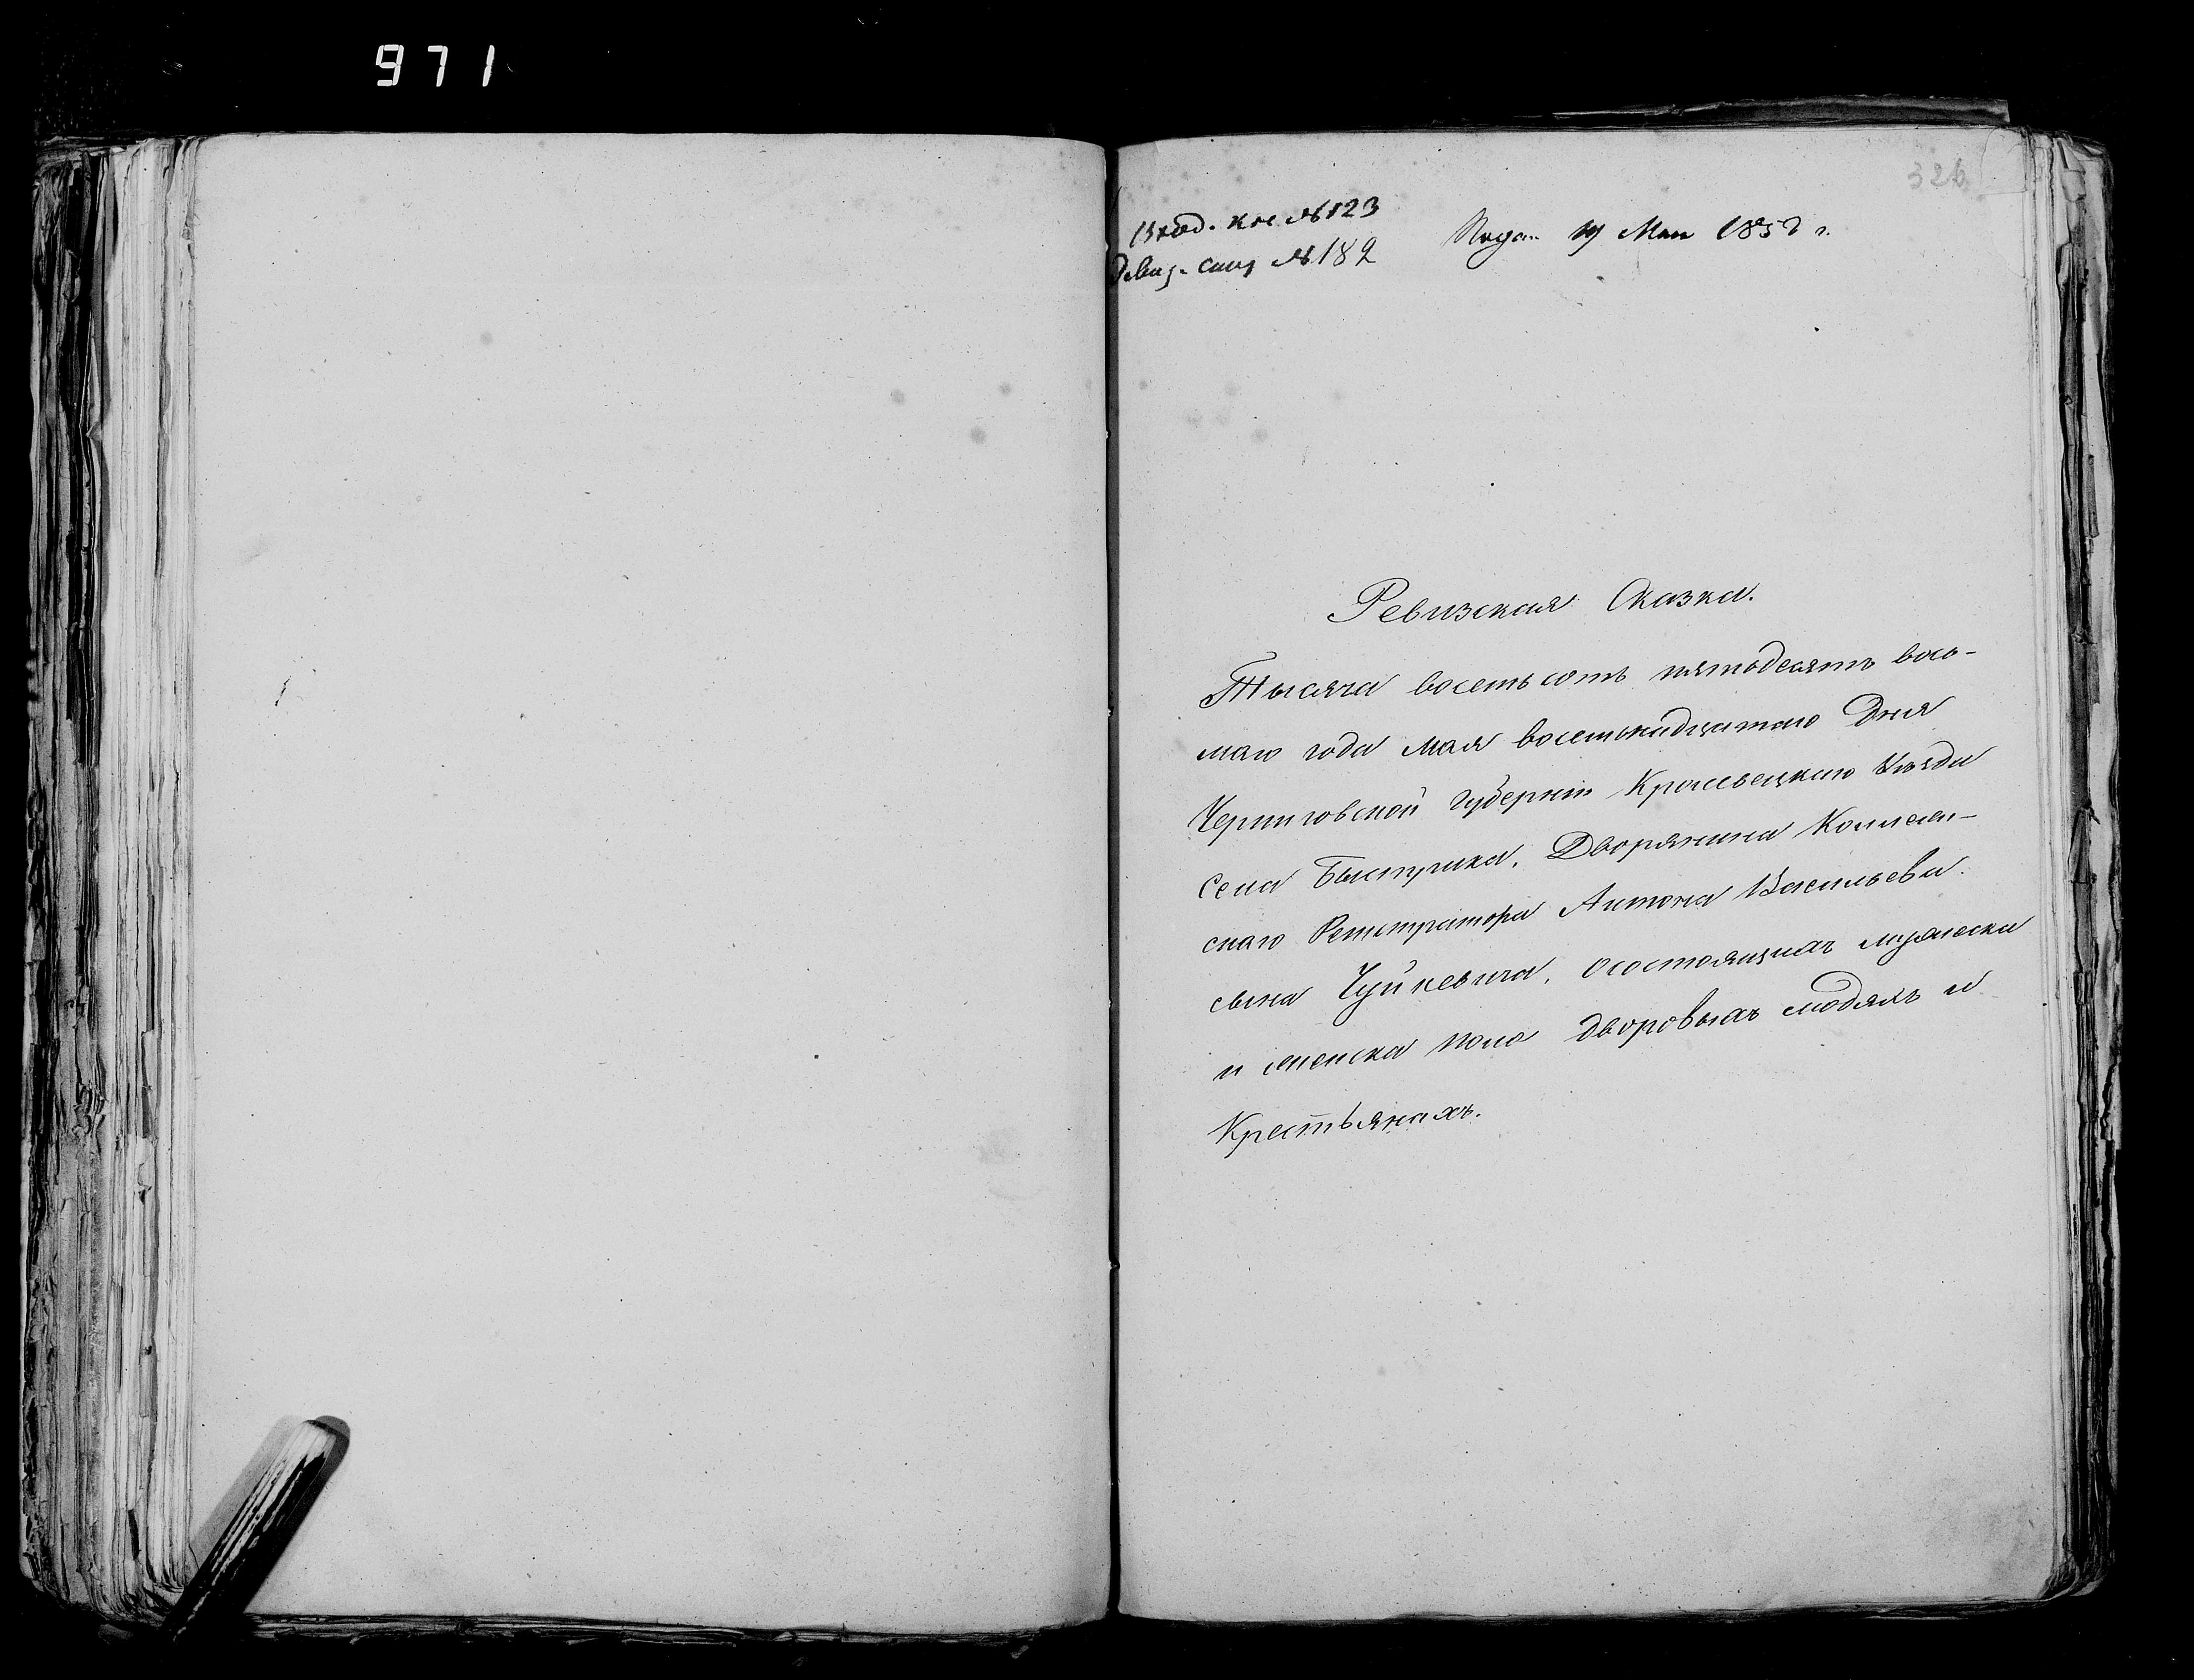 971
326
Вход. кн. № 123
Ревиз. сказ № 182
Подан 19 Мая 1858 г.
Ревизская Сказка.
Тысяча восемь сотъ пятьдесятъ вось-
маго года Мая восемьнадцатаго Дня
Черниговской Губерніи Кролевецкаго Уѣзда
Села Быстрика, Дворянина Коллеж-
скаго Регистратора Антона Васильева
сына Чуйкевича, о состоящихъ мужеска
и женска пола дворовыхъ людяхъ и
Крестьянахъ.